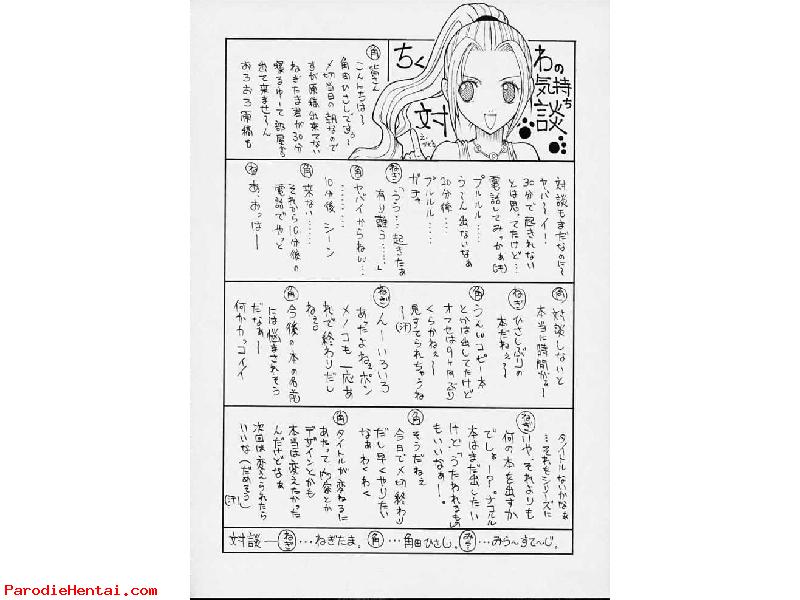 ちくわの気持ち
対談
え・ひさし
角 皆さん
こんにちは〜
角田ひさしですぅ。
〆切当日の朝なので
すが原稿出来てない
ねぎたま君が30分
寝るゆーて部屋から
出て来ませ〜ん
あろあろ原稿も
対談もまだなのに〜
ヤバーイー!
30分で起きれない
とは思ってたけど…
電話してみっかぁ(汗)
プルルル……
う〜ん出ないなぁ
20分後…
プルルル……
ガチャ
ねぎ「うう…起きたぁ
有り難う……」
角 ヤバイからねん…
………
10分後 シーン
角 来ない……
それから10分後の
電話でやっと
ね あ、おっは〜
角 対談しないと
本当に時間が。ー
ねぎ ひさしぶりの
本だねぇ〜
角 うんぃコピー本
とかは出してたけど
オフセは9ヶ月ぶり
くらかねぇ〜
見すてられちゃうね
〜(汗)
ねぎ ん〜いろいろ
あたよねぇポン
メノコも一応あ
れで終わりだし
ねぇ。
角 今後の本の名前
には悩まされそう
だなぁー
何かカッコイイ
タイトルないかなぁ
…それもシリーズに
ねぎ いや、それよりも
何の本を出すか
でしょ!?ナコルル
本はまだ出したい
けど「うたわれるもの」
もいいなぁー。
角 そうだねぇ
今日で〆切終わり
だし早くやりたい
なぁわくわく
角 タイトルが変わるに
あたって内容とか
デザインとかも
本当は変えたかった
んだけどなぁ
次回は変えられたら
いいな(だめそう)
(汗)
対談―ねぎ…ねぎたま。角…角田ひさし。みう…みう〜すて〜じ。
ParodieHentai.com